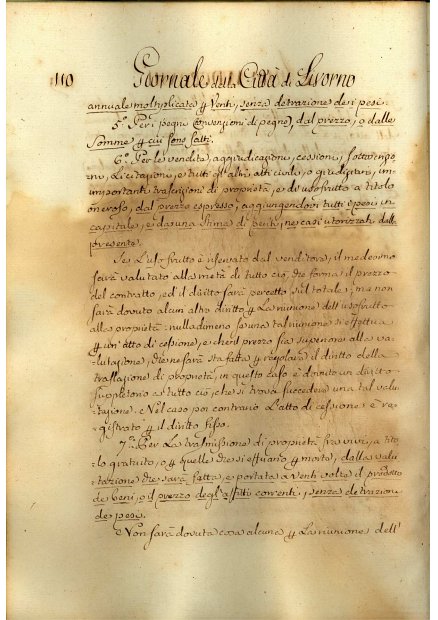 110 Giornale della Città di Livorno
annuale moltiplicata p Venti, senza detrazione dei pesi.
5.° Per i pegni Convenzioni di pegno, dal prezzo, o dalle
Somme p cui sono fatti.
6.° Per le vendite, aggiudicazioni, cessioni,
Licitazioni, e tutti gl'altri atti civili, o giudiciari, im-
importanti traslazioni di proprietà, e di usofrutto a titolo
oneroso, dal prezzo espresso, aggiungendovi tutti i pesi in
capitale, e da una Stima di periti, ne casi utorizzati dalla
presente.
Se L'usofrutto è riservato dal venditore, il medesimo
sarà valutato alla metà di tutto ciò, che forma il prezzo
del contratto, ed il diritto sarà percetto sul totale; ma non
sarà dovuto alcun altro diritto p La riunione dell'usofrutto
alla proprietà: nulladimeno se una tal riunione si effettua
p un'atto di cessione, e che il prezzo sia superiore alla va-
lutazione, che ne sarà sta fatta p regolare il diritto della
traslazione di proprietà, in questo caso è dovuto un diritto
suppletorio a tutto ciò, che si trova succedere una tal valu-
tazione. Nel caso poi contrario L'atto di cessione è re-
gistrato p il diritto fisso.
7.° Per La trasmissione di proprietà fra vivi, a tito-
lo gratuito, o p quelle che si effettuano p morte, dalla valu-
tazione che sarà fatta, e portata a venti volte il prodotto
de beni, o il prezzo degl'affitti correnti, senza detrazione
de pesi.
Non sarà dovuta cosa alcuna p La riunione dell'